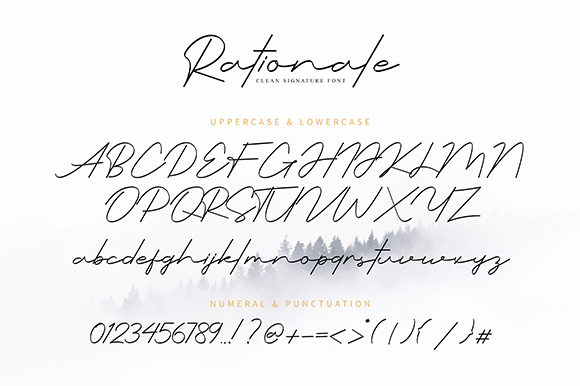 Rationale
CLEAN SIGNATURE FONT
UPPERCASE & LOWERCASE
ABCDEFGHIJKLMN
OPQRSTUVWXYZ
abcdefghijklmnopqrstuvwxyz
NUMERAL & PUNCTUATION
0123456789...!?@+-=<>*(|){/}#